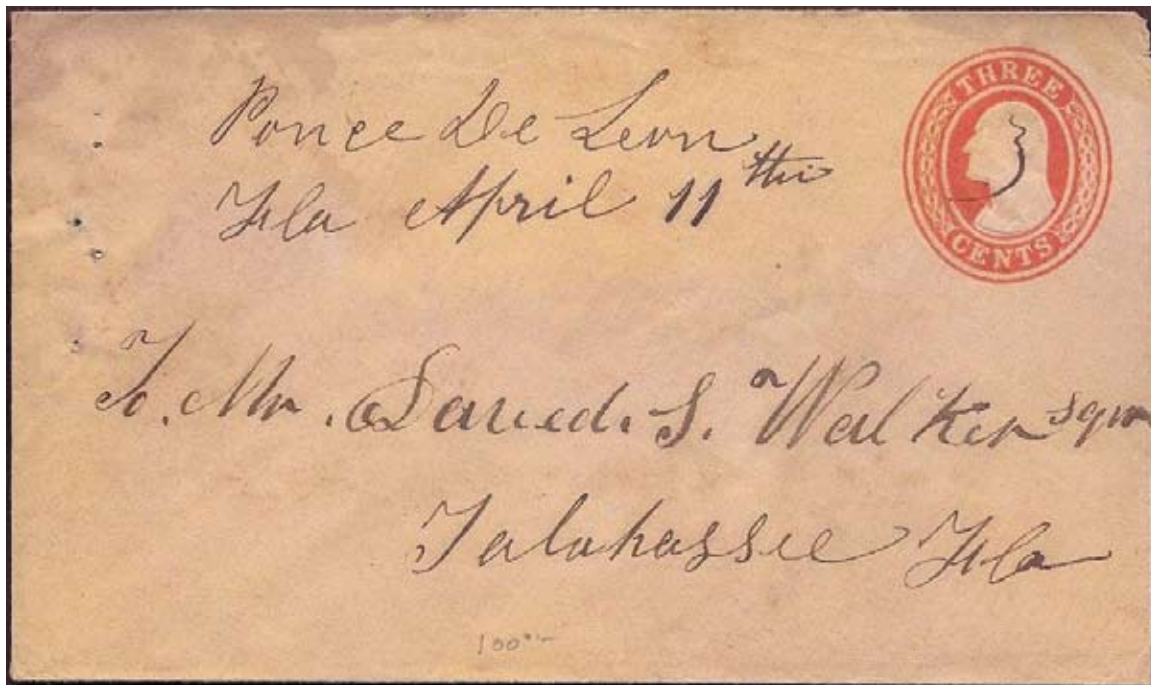 Ponce De Leon
Fla April 11th
THREE
3
CENTS
To. Mr. David. S. Walker sqr
Talahassee Fla
100